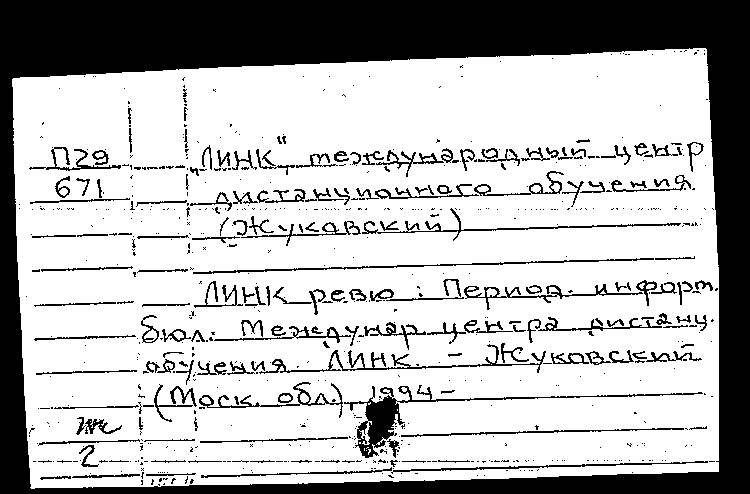 П29
671
„ЛИНК", международный центр
дистанционного обучения
(Жуковский)
ЛИНК ревю : Период. информ.
бюл. Междунар. центра дистанц.
обучения ЛИНК. - Жуковский
(Моск. обл.), 1994-
2